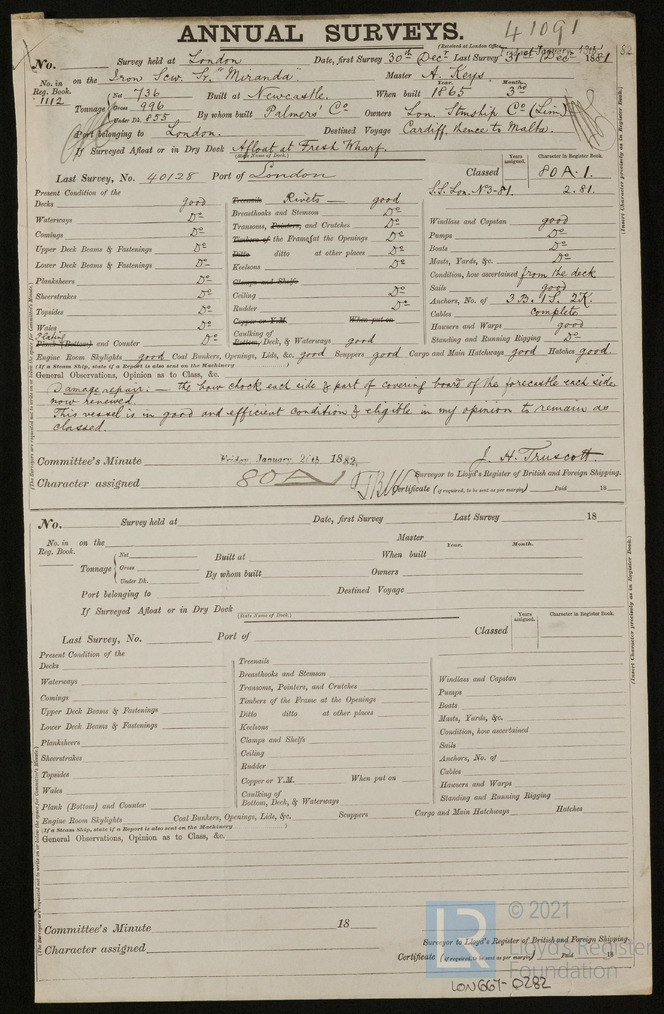 ANNUAL SURVEYS.
41091
(Received at London Office
No. Survey held at London Date, first Survey 30th Decr Last Survey 31st Decr 1881
82
No. in Reg. Book. on the Iron Scw. Sr. "Miranda" Master A. Keys
1112
Tonnage Net 736 Built at Newcastle. When built Year. 1865 Month. 3rd
Gross 996
Under Dk. 855 By whom built Palmers' Co Owners Lon. Stmship Co (Lim)
Port belonging to London. Destined Voyage Cardiff, thence to Malta.
If Surveyed Afloat or in Dry Dock Afloat at Fresh Wharf.
(State Name of Dock.)
Last Survey, No. 40128 Port of London Classed Years assigned. Character in Register Book. 80 A.1.
S.S. Lon. No3-81. 2.81.
Present Condition of the
Decks good
Waterways Do
Comings Do
Upper Deck Beams & Fastenings Do
Lower Deck Beams & Fastenings Do
Planksheers Do
Sheerstrakes Do
Topsides Do
Wales Do
Plating
Plank (Bottom) and Counter Do
Treenails Rivets good
Breasthooks and Stemson Do
Transoms, Pointers, and Crutches Do
Timbers of the Frame at the Openings Do
Ditto ditto at other places Do
Keelsons Do
Clamps and Shelfs
Ceiling Do
Rudder Do
Copper or Y.M. When put on
Caulking of
Bottom, Deck, & Waterways good
Windlass and Capstan good
Pumps Do
Boats Do
Masts, Yards, &c. Do
Condition, how ascertained from the deck
Sails good
Anchors, No. of 3.B. 1S. 2K.
Cables complete
Hawsers and Warps good
Standing and Running Rigging Do
Engine Room Skylights good Coal Bunkers, Openings, Lids, &c. good Scuppers good Cargo and Main Hatchways good Hatches good.
(If a Steam Ship, state if a Report is also sent on the Machinery
General Observations, Opinion as to Class, &c.
Damage repair: — the bow chock each side & part of covering board of the forecastle each side
now renewed.
This vessel is in good and efficient condition & eligible in my opinion to remain as
classed.
J. H. Truscott
Committee's Minute Friday January 1882.
Surveyor to Lloyd's Register of British and Foreign Shipping.
Character assigned 80 A
Certificate (if required, to be sent as per margin) Paid 18
(Insert Character precisely as in Register Book.)
No. Survey held at Date, first Survey Last Survey 18
No. in Reg. Book. on the Master
Tonnage Net Built at When built Year. Month.
Gross
Under Dk. By whom built Owners
Port belonging to Destined Voyage
If Surveyed Afloat or in Dry Dock
(State Name of Dock.)
Last Survey, No. Port of Classed Years assigned. Character in Register Book.
Present Condition of the
Decks
Waterways
Comings
Upper Deck Beams & Fastenings
Lower Deck Beams & Fastenings
Planksheers
Sheerstrakes
Topsides
Wales
Plank (Bottom) and Counter
Treenails
Breasthooks and Stemson
Transoms, Pointers, and Crutches
Timbers of the Frame at the Openings
Ditto ditto at other places
Keelsons
Clamps and Shelfs
Ceiling
Rudder
Copper or Y.M. When put on
Caulking of
Bottom, Deck, & Waterways
Windlass and Capstan
Pumps
Boats
Masts, Yards, &c.
Condition, how ascertained
Sails
Anchors, No. of
Cables
Hawsers and Warps
Standing and Running Rigging
Engine Room Skylights Coal Bunkers, Openings, Lids, &c. Scuppers Cargo and Main Hatchways Hatches
(If a Steam Ship, state if a Report is also sent on the Machinery
General Observations, Opinion as to Class, &c.
(Insert Character precisely as in Register Book.)
Committee's Minute 18
Surveyor to Lloyd's Register of British and Foreign Shipping.
Character assigned
Certificate (if required, to be sent as per margin) Paid 18
LR © 2021
Lloyd's Register
Foundation
LON667-0282